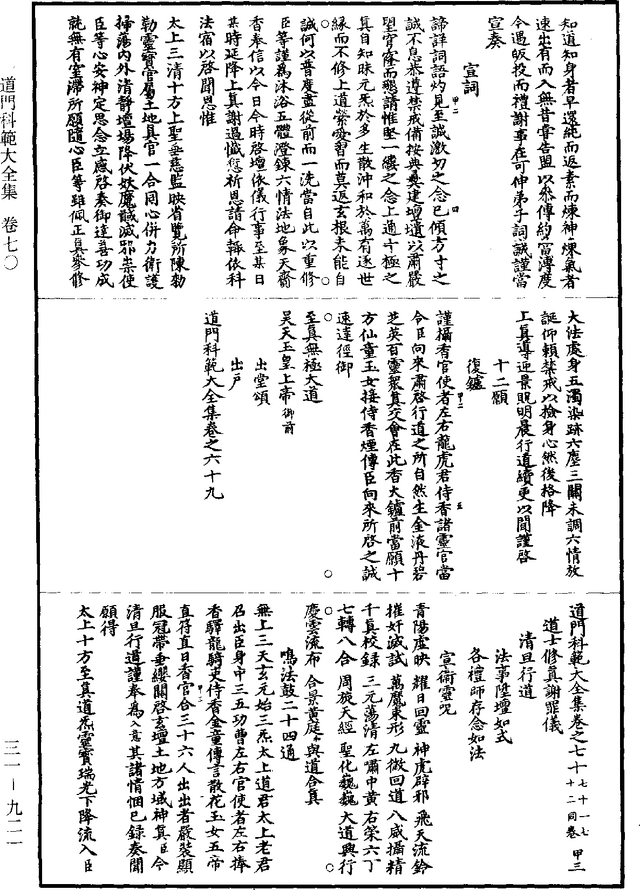 知道知身者早還純而返素而煉神煉氣者
速出有而入無昔嘗告盟以叅傳約當溥度
今遇皈投而禮謝事在可伸弟子詞誠謹當
宣奏
宣詞
諦詳詞語灼見至誠激切之念已傾方寸之
誠不息恭遵禁戒備按典彝建壇墠以肅嚴
望穹窿而懇請惟堅一縷之念上通十極之
真自知昧元炁於多生散沖和於萬有逐世
緣而不修上道縈愛習而莫返玄根未能自
誠何以普度盡從前而一洗當自此以重修
臣等謹爲沐浴五體澄鍊六情法地象天齋
香奉信以今日今時啓壇依儀行事至某日
某時延降上真謝過懺愆祈恩請命輙依科
法宿以啓聞恩惟
太上三清十方上聖垂慈監映省覽所陳勑
勒靈寶官屬土地真官一合同心併力衛護
掃蕩内外清靜壇場降伏妖魔馘滅邪祟使
臣等心安神定思念立感啓奏御達善功成
就無有窒滯所願隨心臣等雖佩正真參修
大法處身五濁染跡六塵三關未調六情放
誕仰頼禁戒以檢身心然後格降
上真導迎景貺明晨行道續更以聞謹啓
十二願
復鑪
謹攝香官使者左右龍虎君侍香諸靈官當
令臣向來肅啓行道之所自然生金液丹碧
芝英百靈衆真交會在此香火鑪前當願十
方仙童玉女接侍香煙傳臣向來所啓之誠
速達徑御
至真無極大道
昊天玉皇上帝御前
出堂頌
出戶
道門科範大全集卷之六十九
道門科範大全集卷之七十
道士修真謝罪儀
清旦行道
法事陞壇如式
各禮師存念如法
宣衛靈呪
青陽虛映 耀日回靈 神虎辟邪 飛天流鈴
摧奸滅試 萬魔束形 九微回道 八威攝精
千真校錄 三元蕩清 左嘯中黄 右榮六丁
七轉八合 周旋天經 聖化巍巍 大道興行
慶雲流布 合景黄庭 與道合真
鳴法鼓二十四通
無上三天玄元始三炁太上道君太上老君
召出臣身中三五功曹左右官使者左右捧
香驛龍騎吏侍香金童傳言散花玉女五帝
直符直日香官各三十六人出出者嚴裝顯
服冠帶垂纓關啓玄壇土地方域神真臣今
清旦行道謹奏為入意其諸情悃已録奏聞
願得
太上十方至真道炁靈寶瑞光下降流入臣
道門科範大全集 卷七〇
三一－九二一